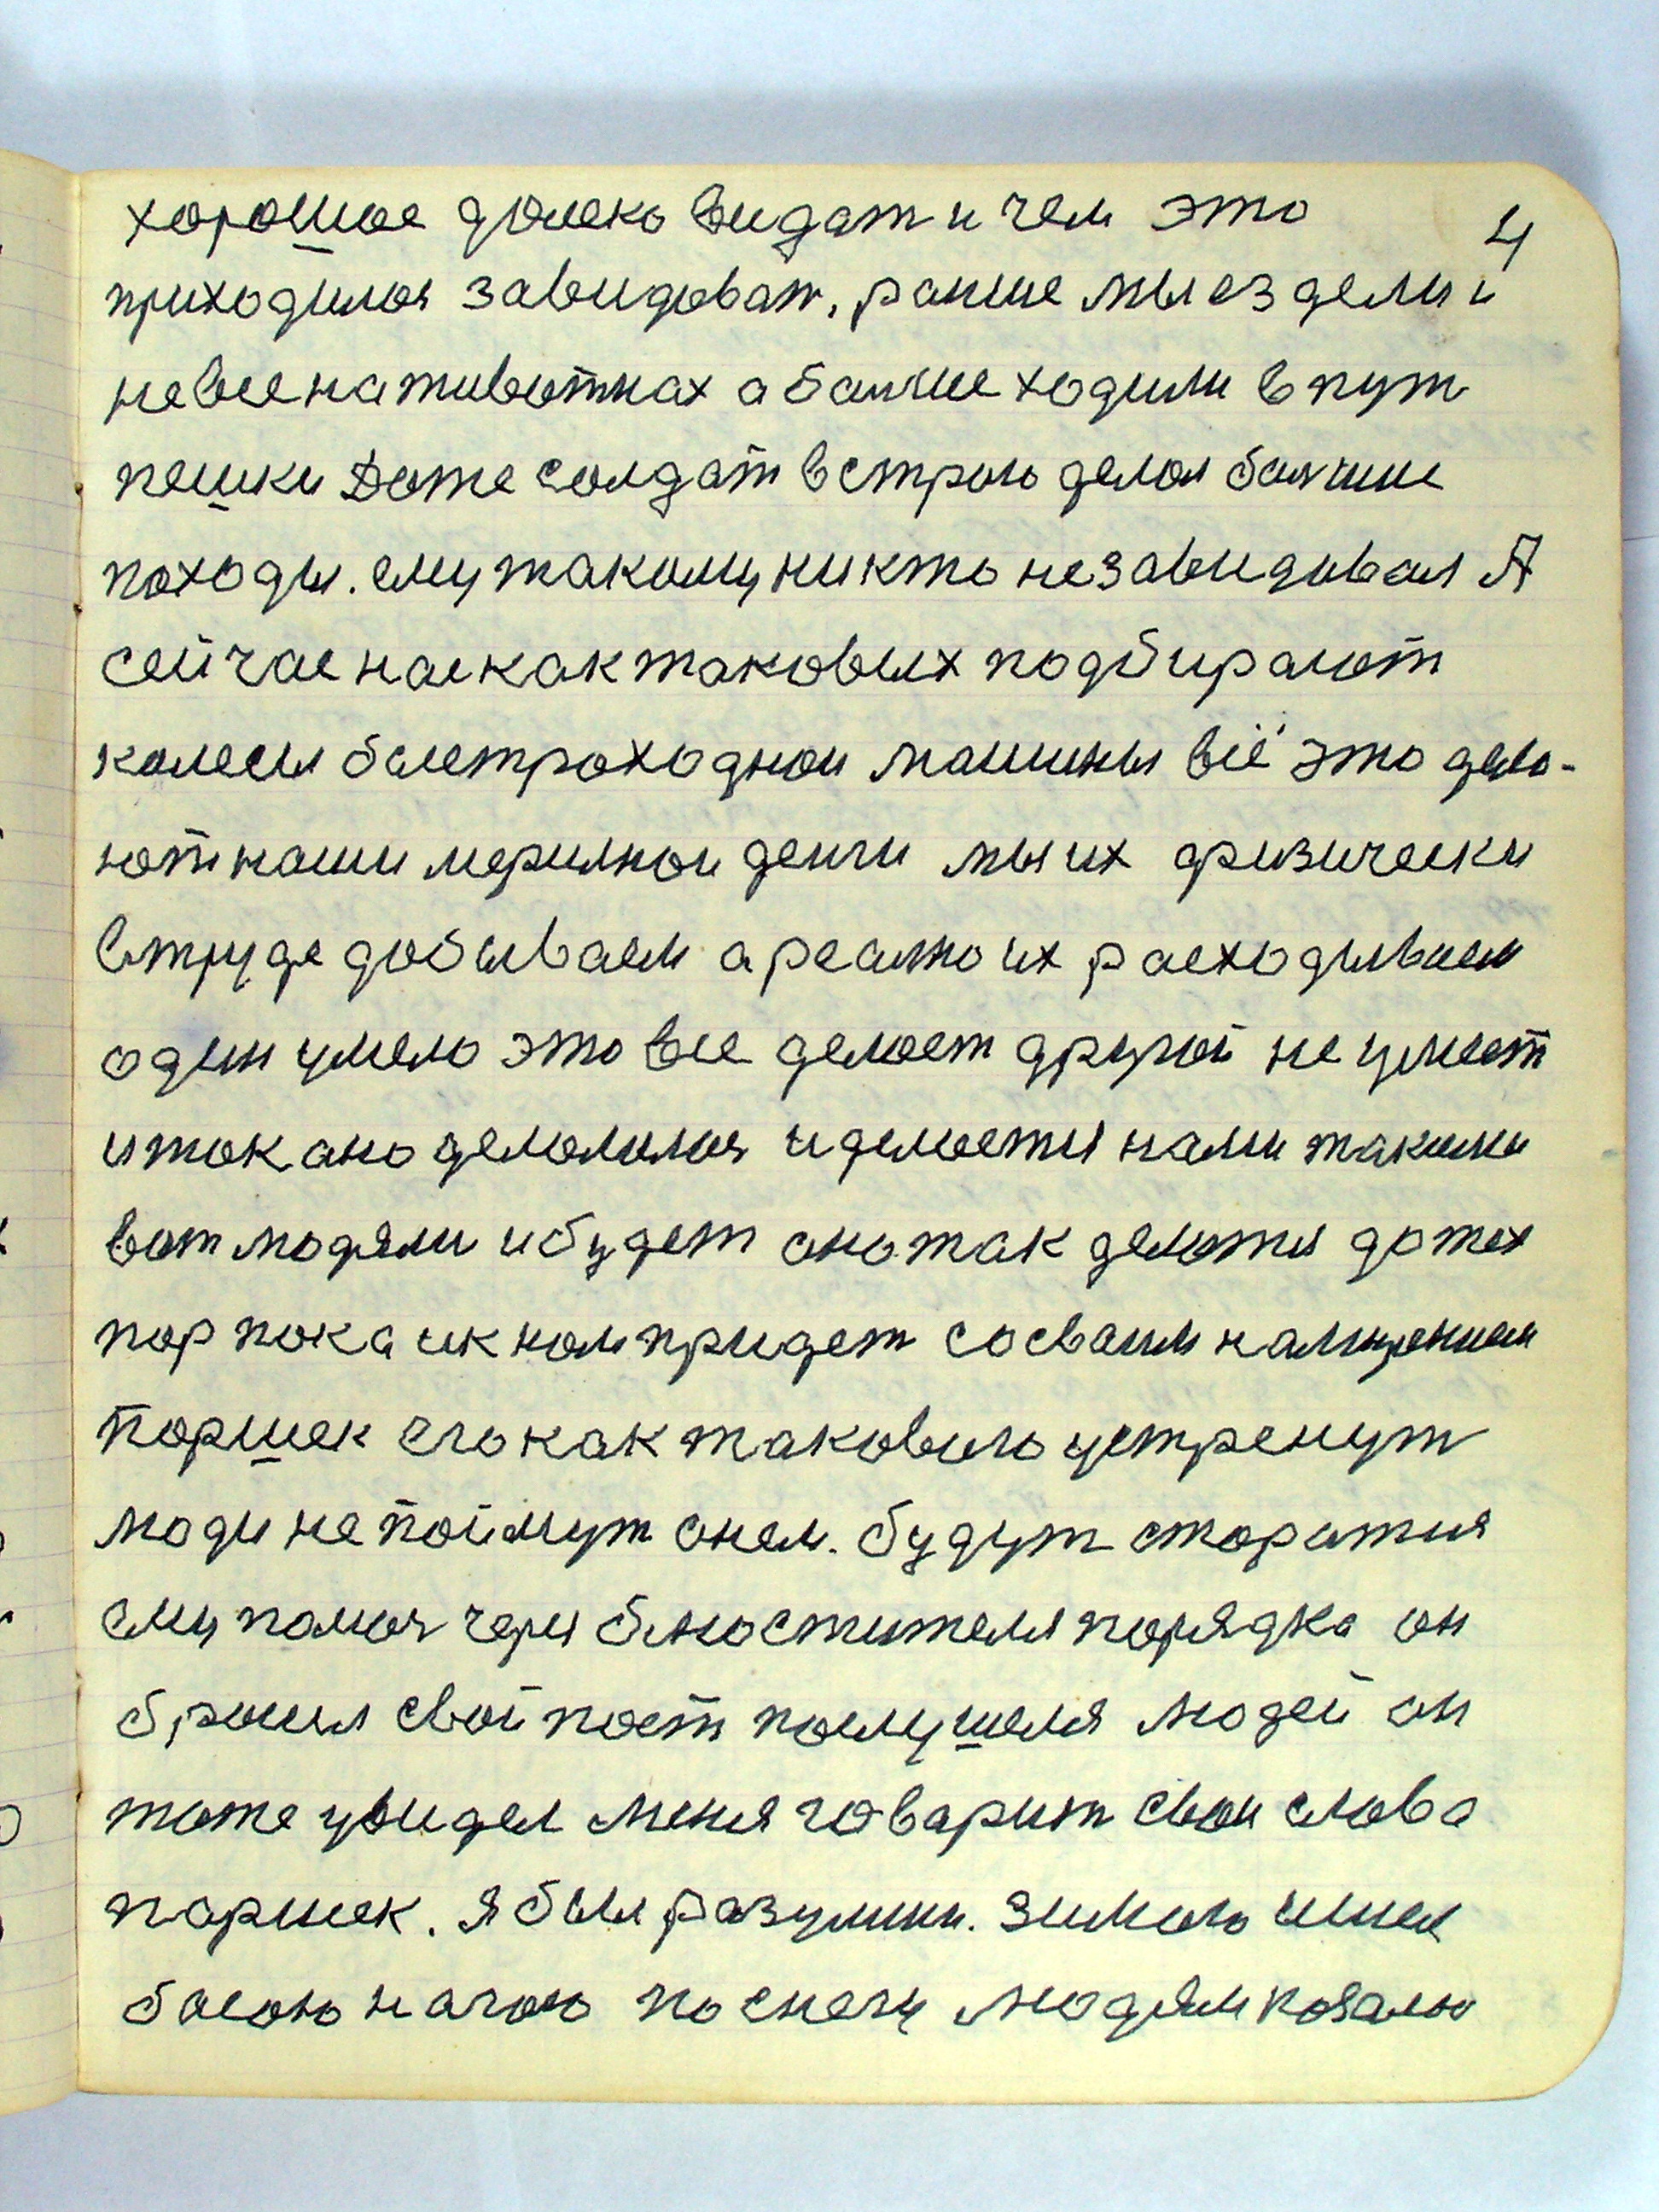 хорошое далеко видат и чем это
4
приходился завидоват, ранше мы ездели и
не все на животнах а балшие ходили в пут
пешки Даже солдат в строю делал балшие
походы. ему такому никто незавидовал А
сейчас нас как таковых подбирают
колесы быстроходнои машины всё это дела-
ют наши мерилнои денги мы их физически
в труде добываем а реално их расходываем
один умело это все делает другой не умеет
и так ано делолился и делается нами такими
вот людями и будет оно так делатся до тех
пор пока и к нам придет со сваим намерением
Паршек его как таковыго устренут
люди не поймут онем. будут старатся
ему помоч через блюстителя порядка он
бросил свой пост послушеля людей он
тоже увидел меня говарит свои слова
паршек. я был разумнн. зимою шел
босою ногою по снегу людям казалю